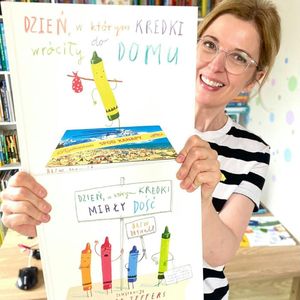 DZIEŃ, w którym KREDKI
wróciły do DOMU
SPOD KANAPY
DZIEŃ, w którym KREDKI
MIAŁY DOŚĆ
DREW
DAYWALT
JEFFERS